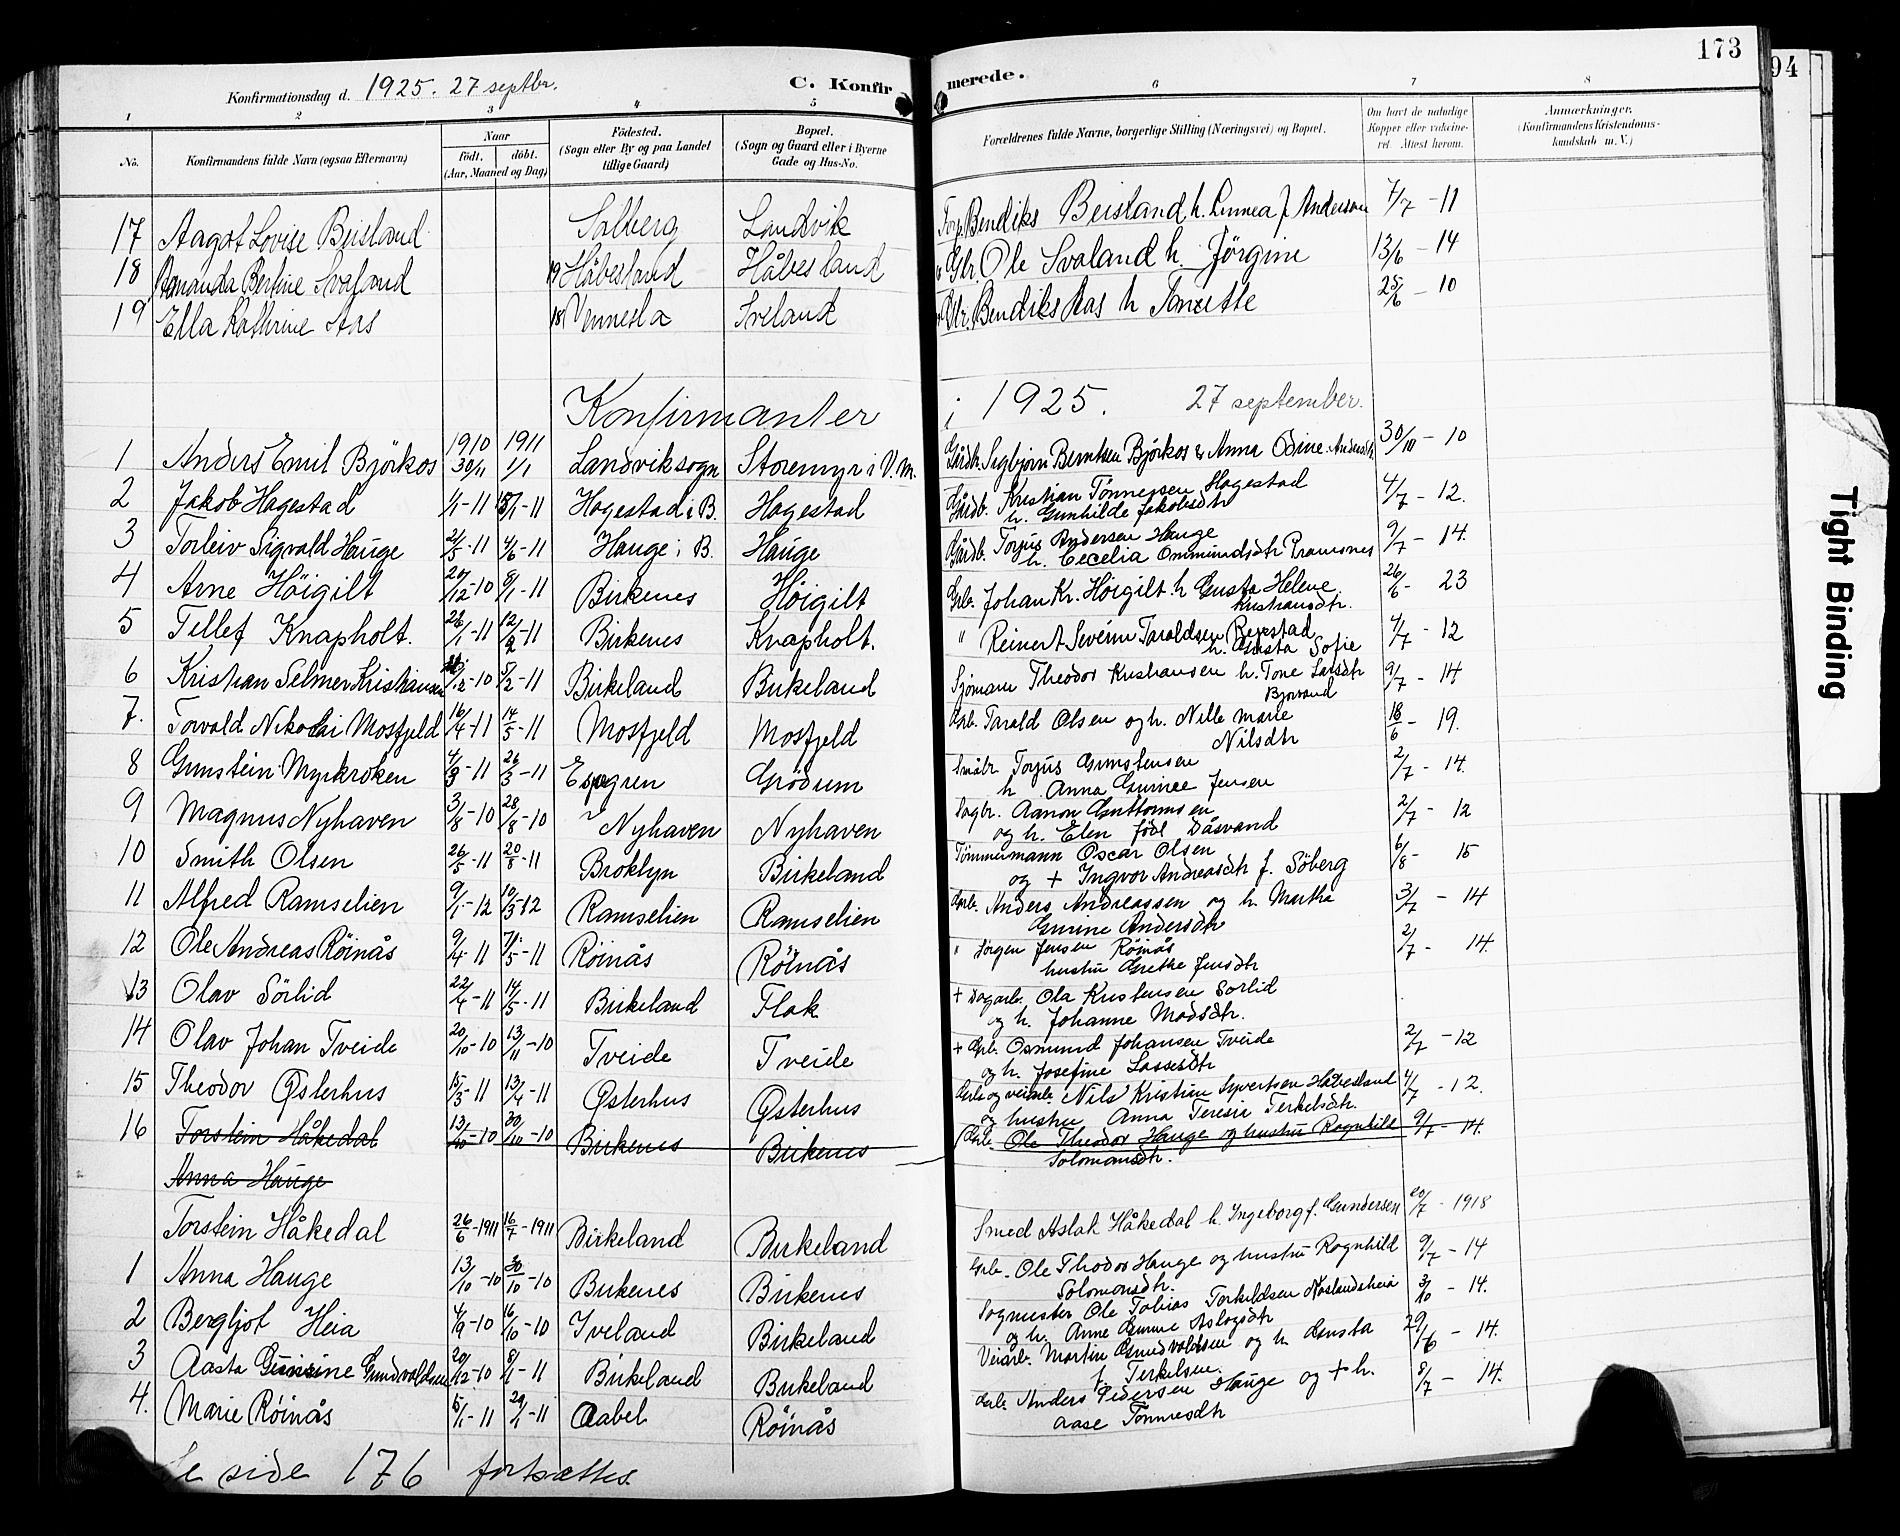 173
94
Konfirmationsdag d. 1925. 27 septbr. C. Konfir merede.
1 2 3 4 5 6 7 8
No. Konfirmandens fulde Navn (ogsaa Efternavn) Naar født. døbt. (Aar, Maaned og Dag) Fødested. (Sogn eller By og paa Landet tillige Gaard) Bopæl. (Sogn og Gaard eller i Byerne Gade og Hus-No. Forældrenes fulde Navne, borgerlige Stilling (Næringsvei) og Bopæl. Om havt de naturlige Kopper eller vaccineret. Attest herom. Anmærkninger. (Konfirmandens Kristendomskundskab m. V.)
17 Aagot Lovise Beisland Solberg Landvik Bendiks Beisland h. Linnea f. Anderson 7/7 - 11
18 Amanda Bertine Svaland Håbesland Håbesland Gbr. Ole Svaland h. Jörgine 13/6 - 14
19 Ella Kathrine Aas Vennesla Iveland Gbr. Bendiks Aas h Tonette 25/6 - 10
Konfirmanter i 1925. 27 september.
1 Anders Emil Björkos 1910 30/11 1911 1/1 Landviksogn Storemyr i V. M. Gårdbr. Sigbjörn Berntsen Björkos & Anna Odine Andersdtr 30/10 - 10
2 Jakob Hagestad 1/1-11 15/1-11 Hagestad i B. Hagestad Gårdb. Kristian Tönnesen Hagestad
h. Gunhilde Jakobsdtr 4/7 - 12.
3 Torleiv Sigvald Hauge 21/5-11 4/6-11 Hauge i B. Hauge Gårdb. Torjus Andersen Hauge
h. Cecelia Ommundsdtr Pramsnes 9/7 - 14.
4 Arne Höigilt 20/12-10 8/1-11 Birkenes Höigilt Grb. Johan Kr. Höigilt h Gusta Helene
Kristiansdtr. 26/6 - 23
5 Tellef Knapholt. 26/1-11 12/2-11 Birkenes Knapholt. " Reinert Severin Taraldsen Revestad
h. Gusta Sofie 4/7 - 12
6 Kristian Selmer Kristiansen /12-10 5/2-11 Birkeland Birkeland Sjömann Theodor Kristiansen h. Tone Larsdtr
Bjorvand 9/7 - 14
7. Torvald Nikolai Mosfjeld 16/4-11 14/5-11 Mosfjeld Mosfjeld Grb. Tarald Olsen og h. Nille Marie
Nilsdtr 18/6 - 19.
8 Gunstein Myrkroken 4/3-11 26/3-11 Espegren Grödum Småbr. Torjus Gunstensen
h Anna Gurinee Jensen 2/7 - 14.
9 Magnus Nyhaven 3/8-10 28/8-10 Nyhaven Nyhaven Dagbr. Aanon Guttormsen
og h. Elen född Dåsvand 2/7 - 12
10 Smith Olsen 26/5-11 20/8-11 Broklyn Birkeland Tömmermann Oscar Olsen
og + Ingvor Andreasdtr f. Söberg 6/8 - 15
11 Alfred Ramselien 9/1-12 10/3-12 Ramselien Ramselien Grb. Anders Andreassen og h. Martha
Gurine Andersdtr 3/7 - 14
12 Ole Andreas Röinås 9/4-11 7/5-11 Röinås Röinås " Jörgen Jensen Röinås
hustru Grethe Jensdtr 2/7 - 14.
13 Olav Sörlid 22/4-11 14/5-11 Birkeland Flak + Dagarb. Ola Kristensen Sorlid
og h. Johanne Madsdtr.
14 Olav Johan Tveide 20/10-10 13/11-10 Tveide Tveide + Grb. Osmund Johansen Tveide
og h. Josefine Lassesdtr 2/7 - 12
15 Theodor Østerhus 15/3-11 13/4-11 Østerhus Østerhus Grb. og veiarb. Nils Kristian Syvertsen Håbesland
og hustru Anna Teresia Terkelsdtr. 4/7 - 12.
16 Torstein Håkedal 13/10-10 30/10-10 Birkenes Birkenes Grb. Ole Theodor Hauge og hustru Ragnhild
Solomonsdtr. 9/7 - 14.
Anna Hauge
Torstein Håkedal 26/6-1911 16/7-1911 Birkeland Birkeland Smed Aslak Håkedal h. Ingeborg f. Gundersen 20/7 - 1918
1 Anna Hauge 13/10-10 30/10-10 Birkenes Birkenes Grb. Ole Thodor Hauge og hustru Ragnhild
Solomonsdtr. 9/7 - 14
2 Bergljot Heia 4/9-10 16/10-10 Iveland Birkeland Sagmester Ole Tobias Torkildsen
og h. Anne Gunne Aslagsdtr 3/10 - 14.
3 Aasta Gunsine Gundvaldsen 20/12-10 8/1-11 Birkeland Birkeland Veiarb. Martin Gundvaldsen og h Gusta
f. Terkelsen. 29/6 - 14.
4. Marie Röinås 15/1-11 29/1-11 Aabel Röinås Grb. Anders Pedersen Hauge og + h.
Aase Tönnesdtr 8/7 - 14.
Se side 176 fortsættes.
Tight Binding